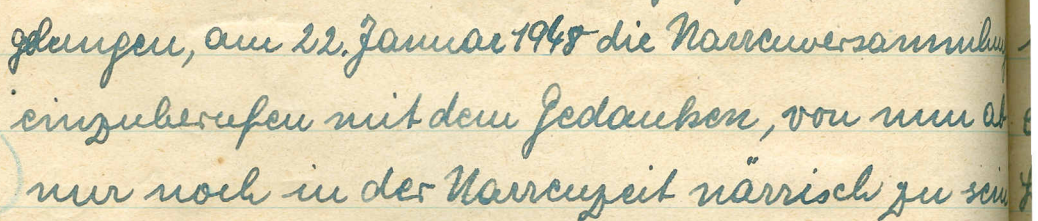 gelungen, am 22. Januar 1948 die Narrenversammlung
einzuberufen mit dem Gedanken, von nun ab
nur noch in der Narrenzeit närrisch zu sein